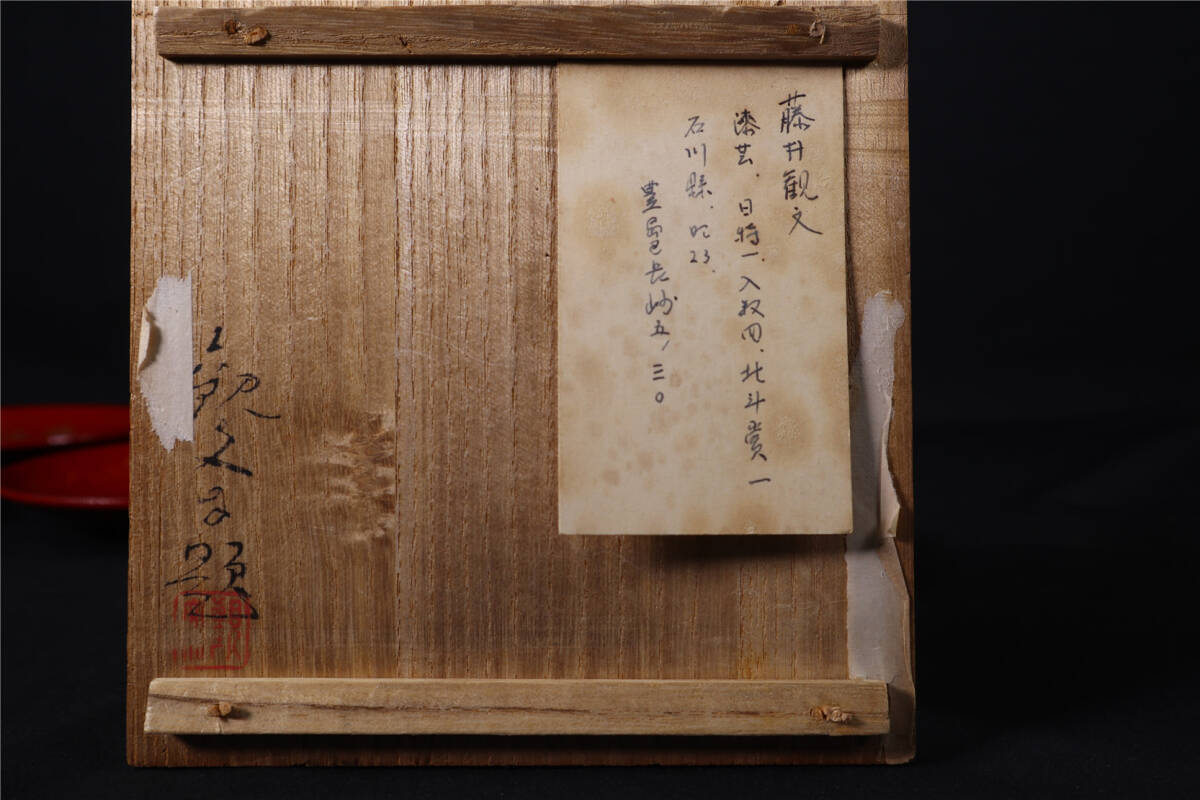 藤井観文
漆芸、日特一、入叔四、北斗賞一
石川縣、昭23、
豊島長崎五ノ三〇
観文自題